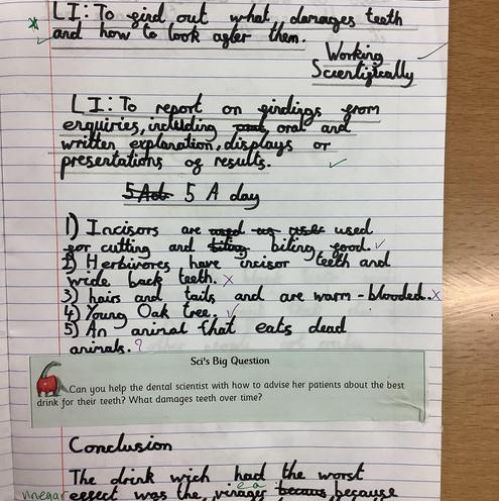 LI: To find out what damages teeth
and how to look after them.
Working
Scientifically
LI: To report on findings from
enquiries, including oral and
written explanation, displays or
presentations of results.
5 A day
1) Incisors are used
for cutting and biting food.
2) Herbivores have incisor teeth and
wide back teeth. x
3) hairs and tails and are warm-blooded. x
4) Young Oak tree.
5) An animal that eats dead
animals. ?
Sci's Big Question
Can you help the dental scientist with how to advise her patients about the best
drink for their teeth? What damages teeth over time?
Conclusion
The drink wich had the worst
vinegar effect was the because